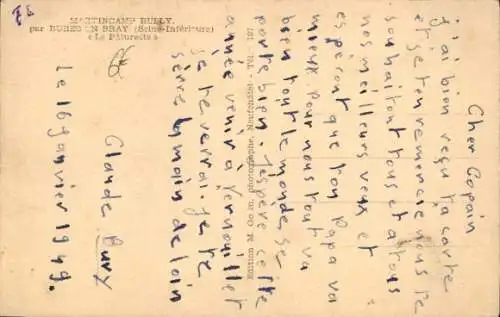 MARTINCAMP BULLY.
par BURES EN BRAY (Seine-Inférieure)
« La Pâturette »
Cher Copain
j'ai bien reçu ta carte
et je t'en remercie nous te
souhaitont tous et a tous
nos meilleurs veux et
esperont que ton Papa va
mieux. Pour nous tout va
bien tout le monde se
porte bien. J'espère cette
année venir à Vernouillet
je te verrai. Je te
serre la main de loin
Claude
Le 16 Janvier 1949.
Edition M. photographe, Neufchâtel - Tél. 181